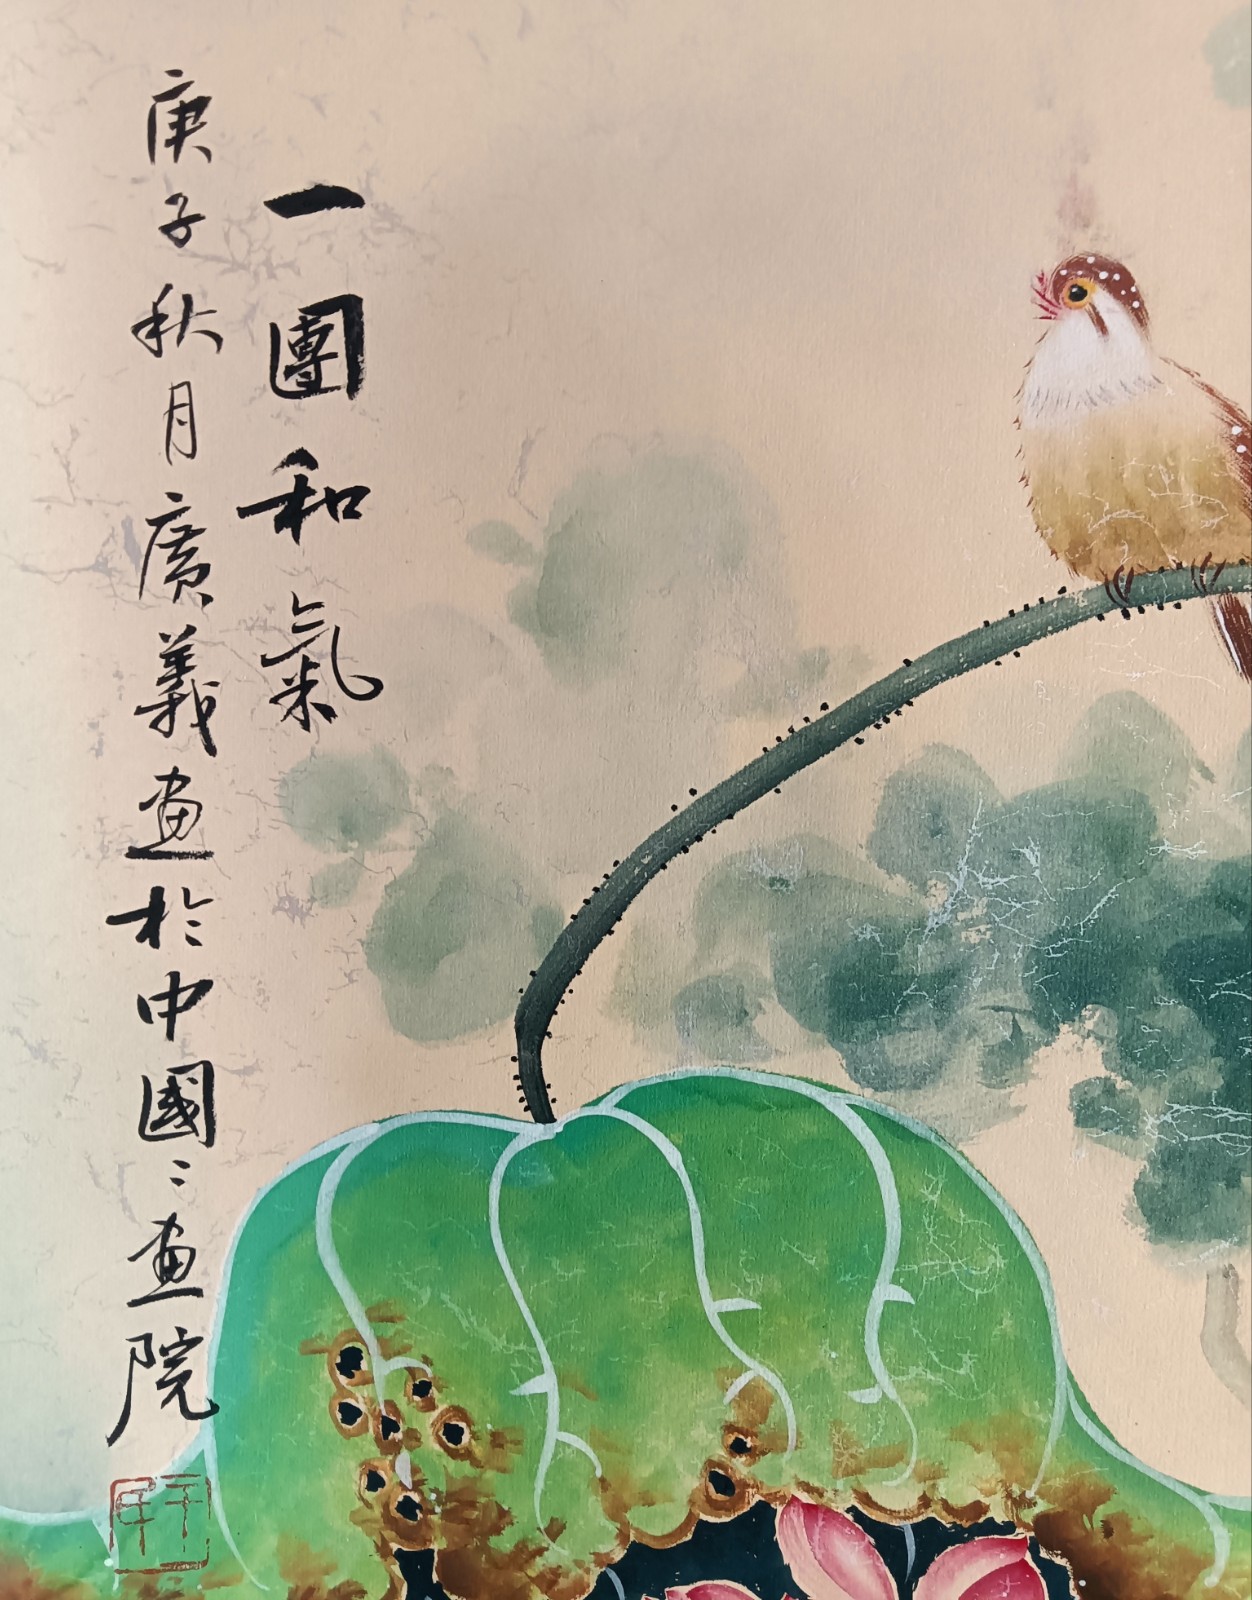 一團和氣
庚子秋月廣義畫於中國〻畫院